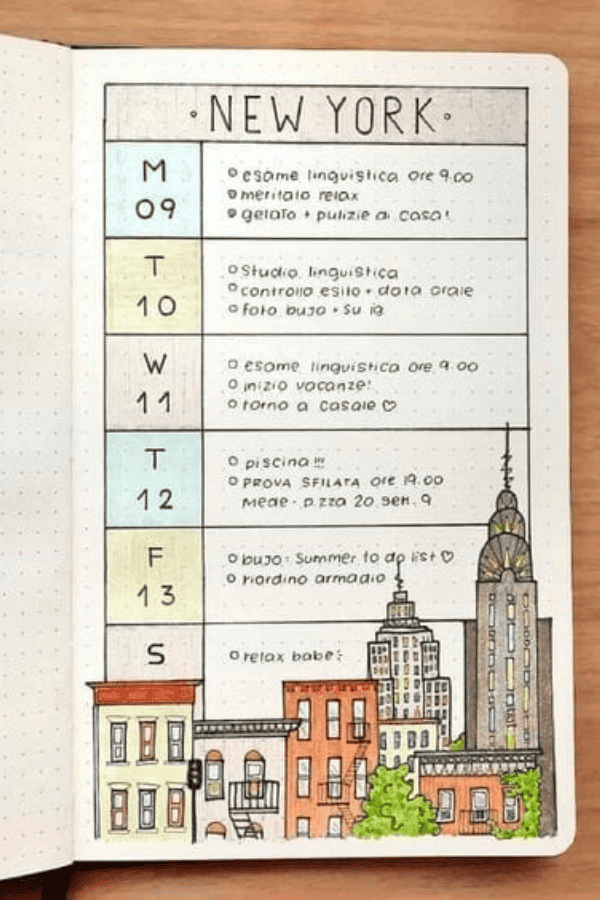 ·NEW YORK·
M
09
esame linguistica ore 9.00
meritato relax
gelato + pulizie di casa!
T
10
Studio linguistica
controllo esito + data orale
foto bujo + su ig
W
11
esame linguistica ore 9.00
inizio vacanze!
torno a casale ♡
T
12
piscina !!!
PROVA SFILATA ore 19.00
Mede - pizza 20
F
13
bujo: Summer to do list ♡
riordino armadio
S
relax babe